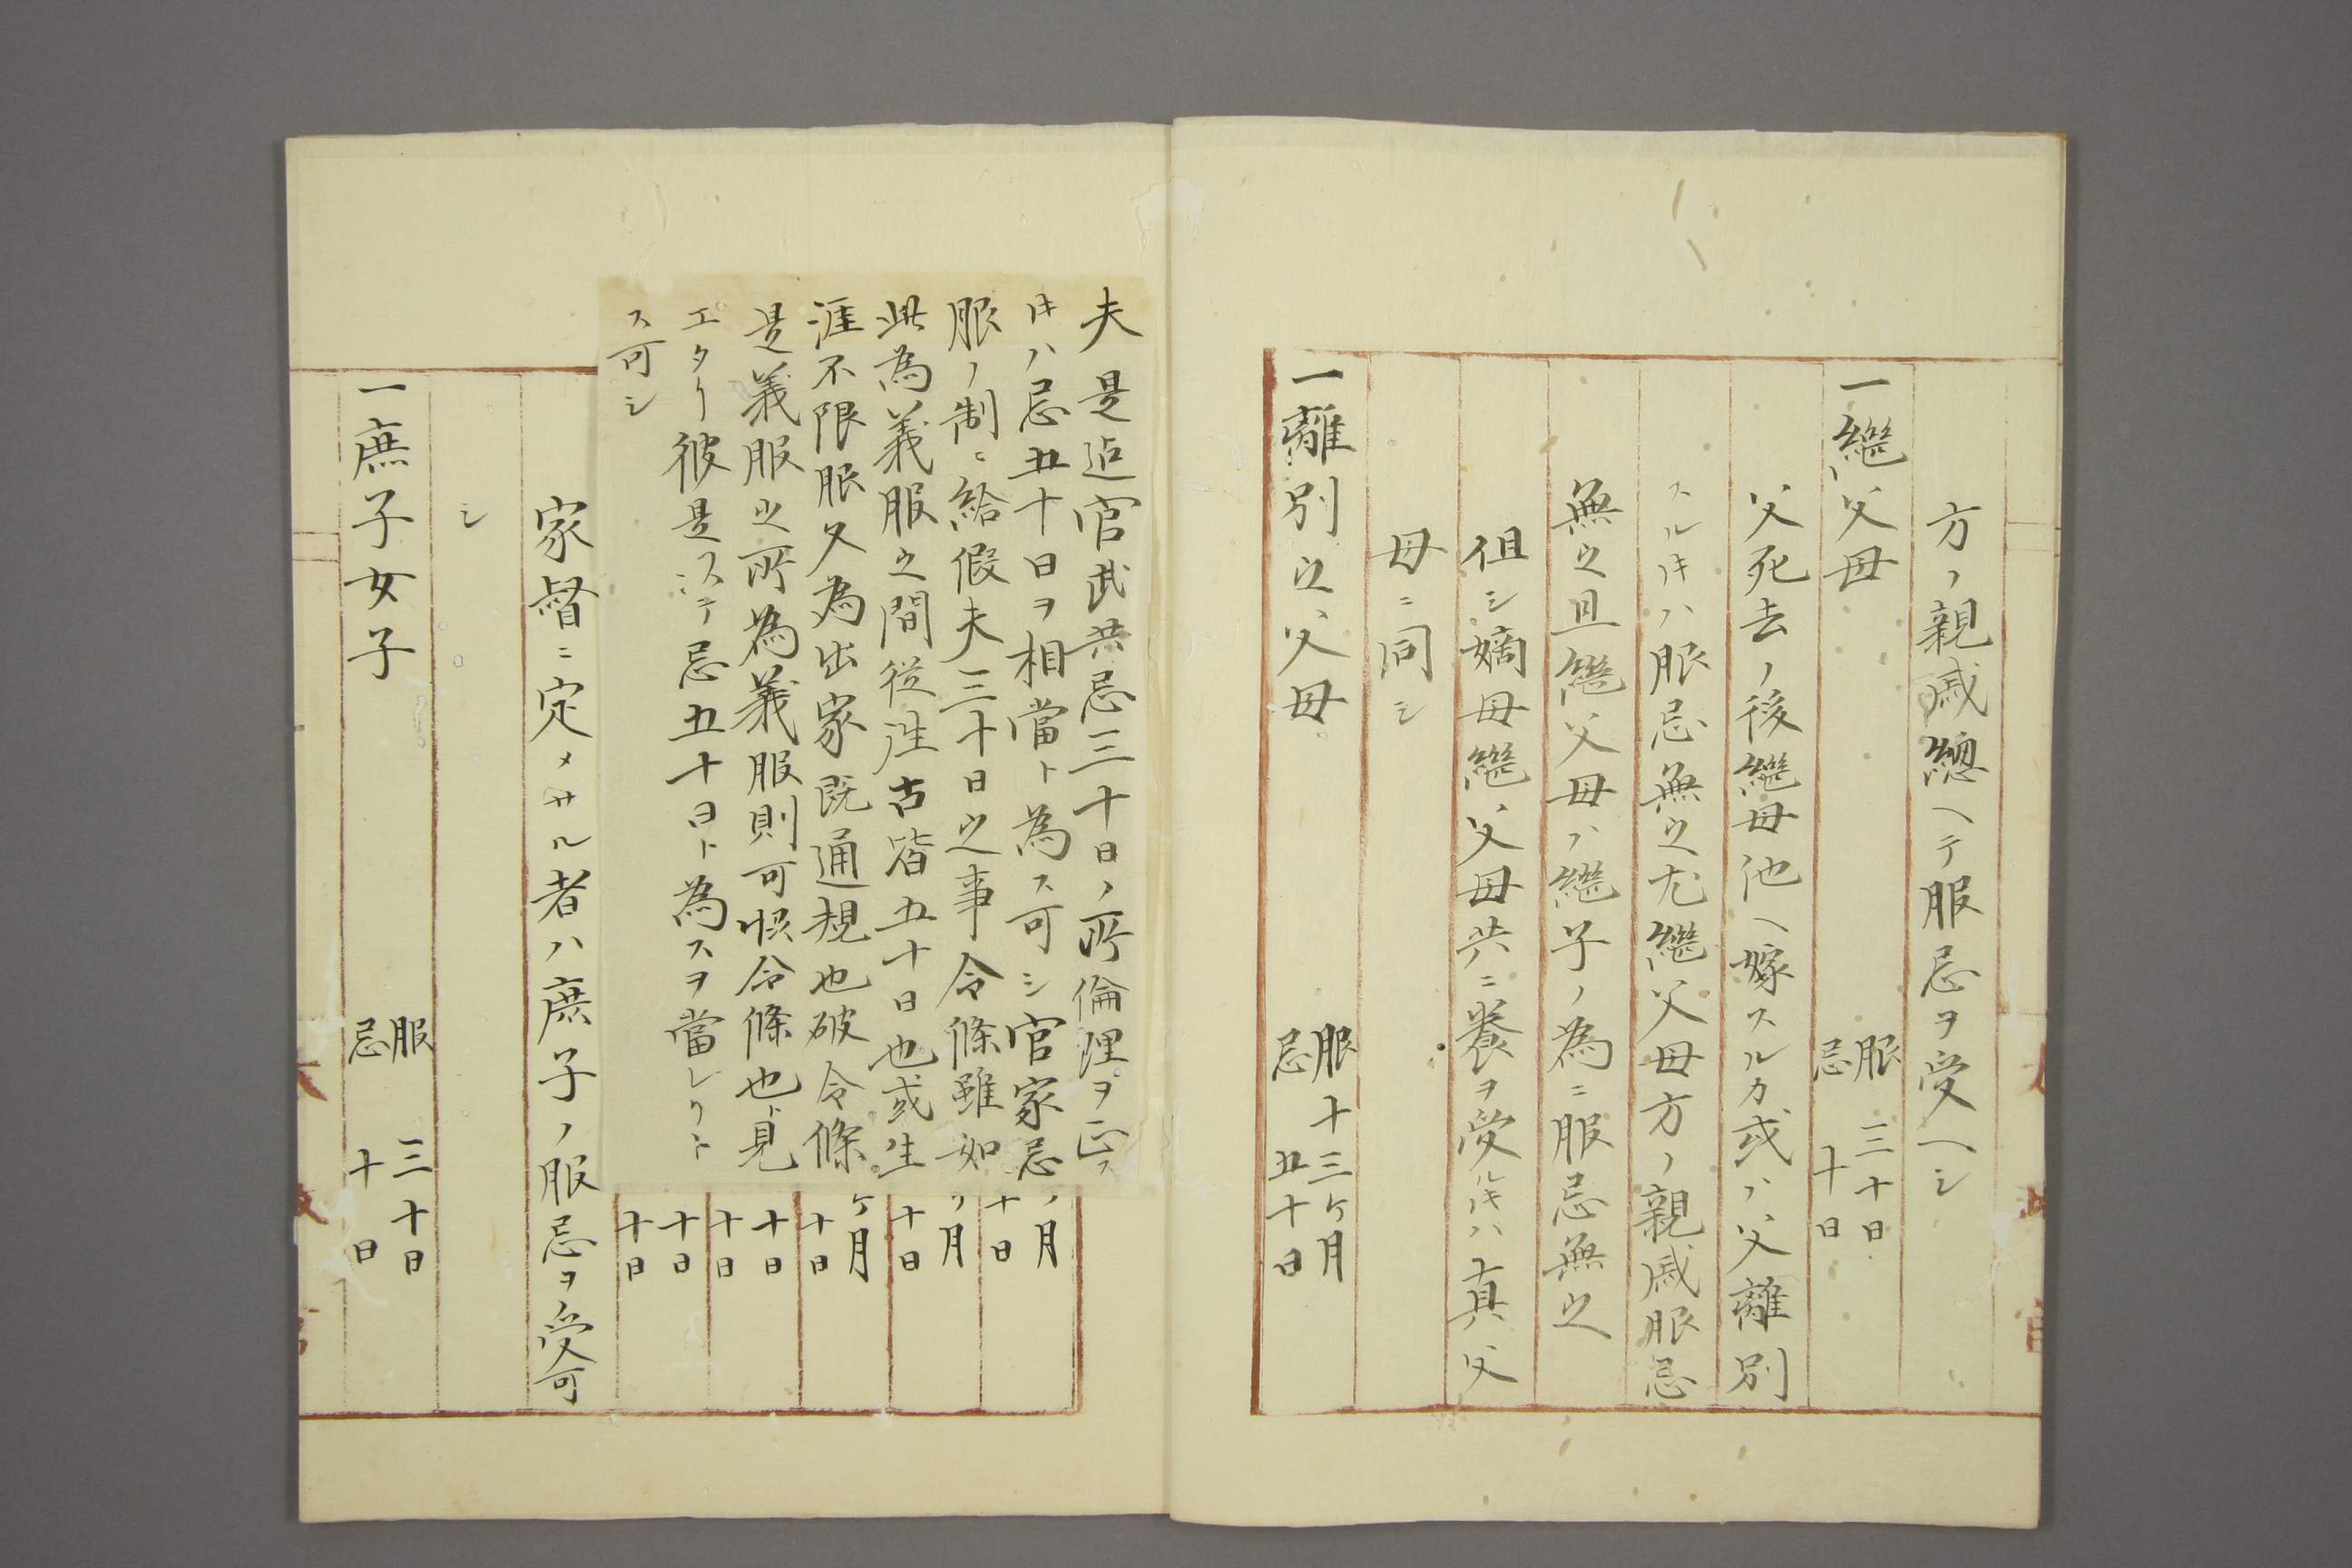 方ノ親戚總ヘテ服忌ヲ受ヘシ
一繼父母
服 三十日
忌 十日
父死去ノ後繼母他ヘ嫁スルカ或ハ父離別
スル片ハ服忌無之尤繼父母方ノ親戚服忌
無之且繼父母ハ繼子ノ為ニ服忌無之
但シ嫡母繼父母共ニ養ヲ受ル片ハ真父
母ニ同シ
一離別之父母
服 十三ケ月
忌 五十日
夫是迠官武共忌三十日ノ所倫理ヲ正ス
片ハ忌五十日ヲ相當ト為ス可シ官家忌
服ノ制ニ給假夫三十日之事令條雖如
此為義服之間從往古皆五十日也或生
涯不限服又為出家既通規也破令條
是義服之所為義服則可准令條也ト見
エタリ彼是ニテ忌五十日ト為スヲ當レリト
ス可シ
月
十日
月
十日
ケ月
十日
十日
十日
十日
十日
家督ニ定メサル者ハ庶子ノ服忌ヲ受可
シ
一庶子女子
服 三十日
忌 十日